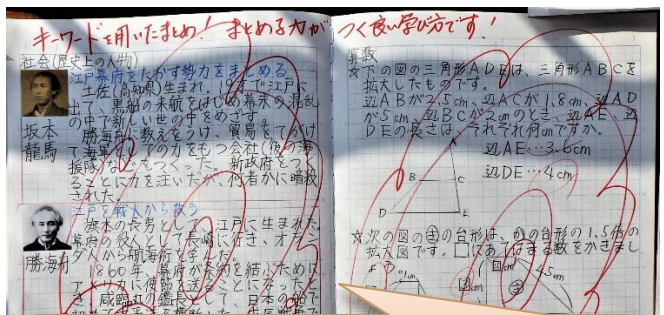 キーワードを用いたまとめ！まとめる力がつく良い学び方です！
社会(歴史上の人物)
江戸幕府をたおす勢力をまとめる
土佐(高知県)生まれ。19才で江戸に
出て、黒船の来航をはじめ幕末の混乱
の中で新しい世の中をめざす。
勝海舟に教えをうけ、貿易をてがけ
て海軍
の力をもつ会社(後の海
援隊)
をつくった。新政府をつく
ることに力を注いだが、何者かに暗殺
された。
坂本
龍馬
江戸を戦火から救う
旗本の長男として、江戸に生まれた。
幕府の役人として長崎に行き、オラン
ダ人から航海術を学んだ。
1860年、幕府が条約を結ぶために
アメリカに使節を送ることになったと
き、咸臨丸の艦長として、日本の船で
勝海舟
算数
☆下の図の三角形ADEは、三角形ABCを
拡大したものです。
辺ABが2.5cm、辺ACが1.8cm、辺AD
が5cm、辺BCが2cmのとき、辺AE、辺
DEの長さは、それぞれ何cmですか。
辺AE…3.6cm
辺DE…4cm
A
B
C
D
E
☆次の図の㋖の台形は、㋕の台形の1.5倍の
拡大図です。□にあてはまる数をかきまし
ょう。
4.5cm